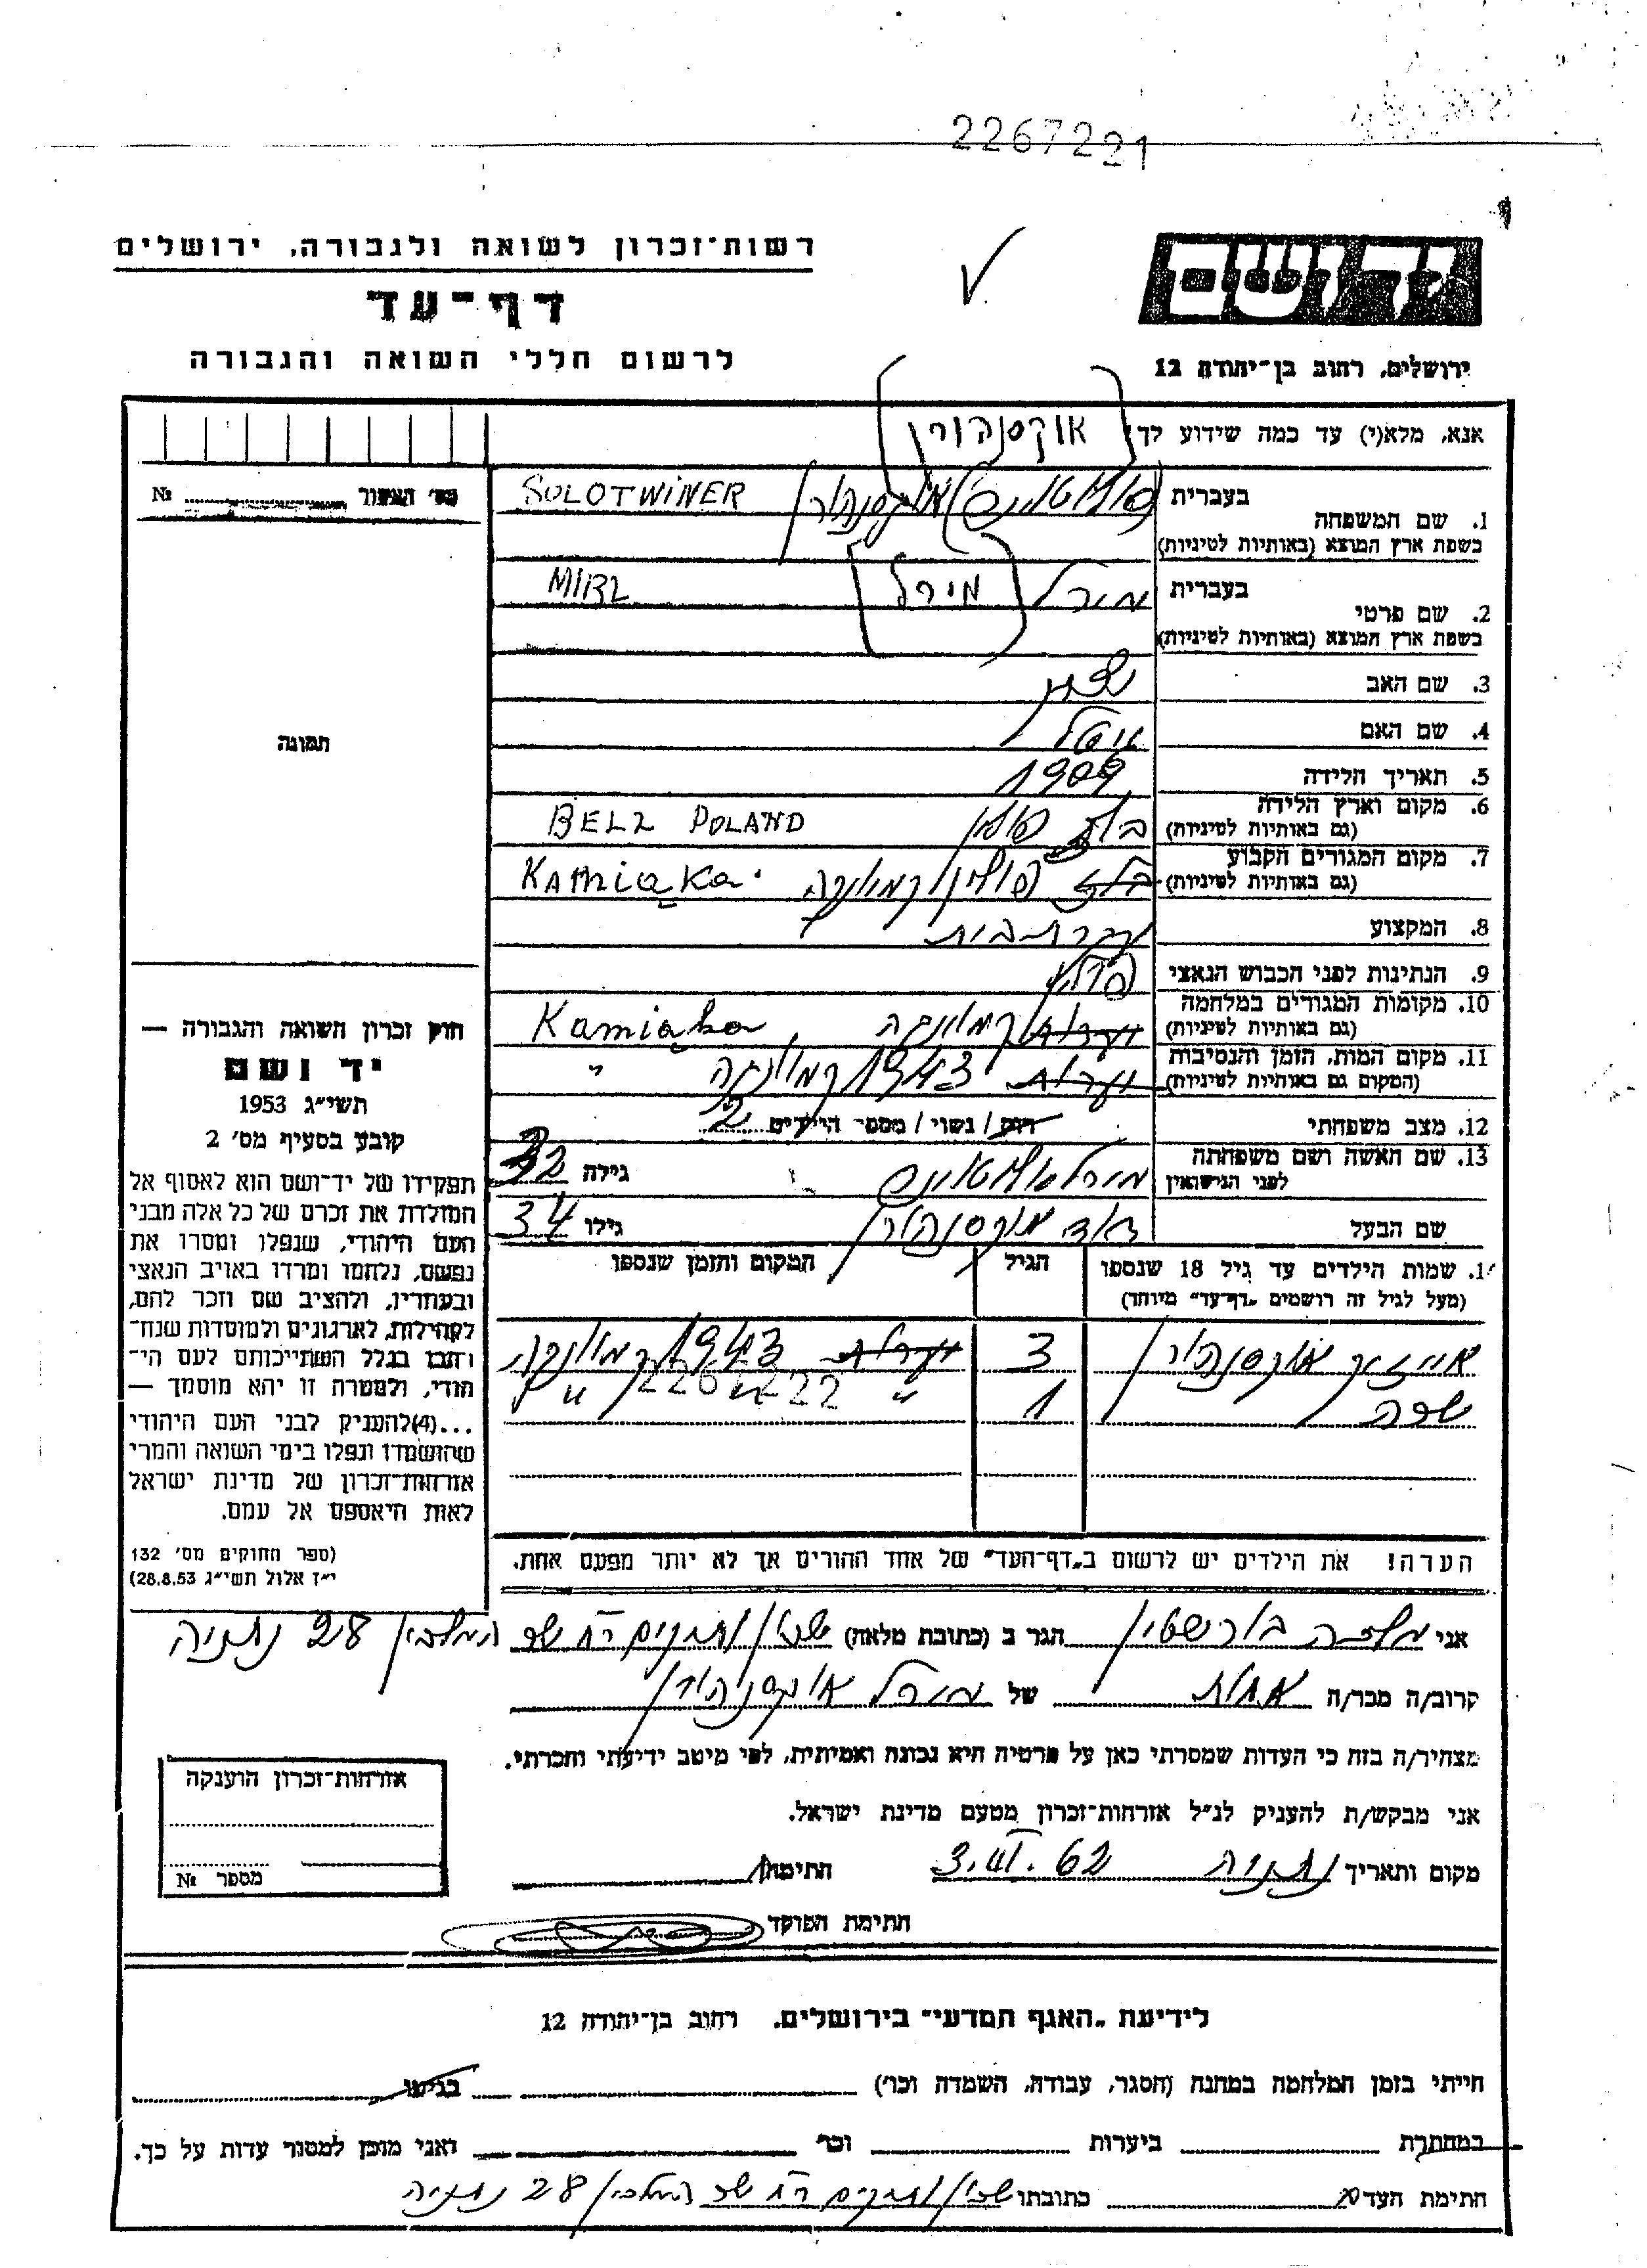 2267221
רשות־זכרון לשואה ולגבורה, ירושלים
דף־עד
לרשום חללי השואה והגבורה
יד ושם
ירושלים, רחוב בן־יהודה 12
אנא, מלא(י) עד כמה שידוע לך!
אוקסנהורן
מס׳ האשור № 
1. שם המשפחה
בעברית
אוקסנהורן SOLOTWINER
בשפת ארץ המוצא (באותיות לטיניות)
2. שם פרטי
בעברית
מירל מירל MIRL
בשפת ארץ המוצא (באותיות לטיניות)
3. שם האב
4. שם האם
איטל
5. תאריך הלידה 1909
6. מקום וארץ הלידה
(גם באותיות לטיניות)
בלז פולין BELZ POLAND
7. מקום המגורים הקבוע
(גם באותיות לטיניות)
בלז פולין קמיונקה KAMIąKa
8. המקצוע
עקרת־בית
9. הנתינות לפני הכבוש הנאצי
פולנית
10. מקומות המגורים במלחמה
(גם באותיות לטיניות)
קמיונקה Kamiąka
11. מקום המות, הזמן והנסיבות
(המקום גם באותיות לטיניות)
1943 קמיונקה "
12. מצב משפחתי
רווק / נשוי / מספר הילדים 2
13. שם האשה ושם משפחתה
לפני הנישואין
מירל גילה 32
שם הבעל
אוקסנהורן גילו 34
תמונה
חוק זכרון השואה והגבורה —
יד ושם
תשי״ג 1953
קובע בסעיף מס׳ 2
תפקידו של יד־ושם הוא לאסוף אל
המולדת את זכרם של כל אלה מבני
העם היהודי, שנפלו ומסרו את
נפשם, נלחמו ומרדו באויב הנאצי
ובעוזריו, ולהציב שם וזכר להם,
לקהילות, לארגונים ולמוסדות שנח־
רבו בגלל השתייכותם לעם הי־
הודי, ולמטרה זו יהא מוסמך —
...(4)להעניק לבני העם היהודי
שהושמדו ונפלו בימי השואה והמרי
אזרחות־זכרון של מדינת ישראל
לאות היאספם אל עמם.
(ספר החוקים מס׳ 132
י״ז אלול תשי״ג 28.8.53)
14. שמות הילדים עד גיל 18 שנספו
(מעל לגיל זה רושמים „דף־עד״ מיוחד)
הגיל
המקום והזמן שנספו
אייזיק אוקסנהורן 3 1943 קמיונקה
שרה 1 " " "
2267222
הערה! את הילדים יש לרשום ב„דף־העד״ של אחד ההורים אך לא יותר מפעם אחת.
אני מלכה בורשטין הגר ב (כתובת מלאה) שכון ותיקים רח׳ שד׳ המלכין 28 נתניה
קרוב/ה מכר/ה אחות של מירל אוקסנהורן
מצהיר/ה בזה כי העדות שמסרתי כאן על פרטיה היא נכונה ואמיתית, לפי מיטב ידיעתי והכרתי.
אני מבקש/ת להעניק לנ״ל אזרחות־זכרון מטעם מדינת ישראל.
מקום ותאריך נתניה 3.VI.62 חתימה
חתימת הפוקד
אזרחות־זכרון הוענקה
מספר №
לידיעת „האגף המדעי״ בירושלים, רחוב בן־יהודה 12
הייתי בזמן המלחמה במחנה (הסגר, עבודה, השמדה וכו׳) בגיטו
במחתרת ביערות וכו׳ ואני מוכן למסור עדות על כך.
חתימת העד כתובתו שכון ותיקים רח׳ שד׳ המלכין 28 נתניה